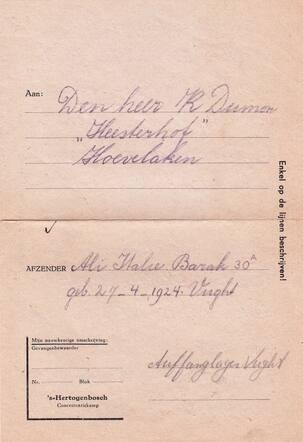 Aan: Den heer K Dumon
„Heesterhof"
Hoevelaken
Enkel op de lijnen beschrijven!
AFZENDER Ali Italie Barak 30A
geb. 27-4-1924 Vught
Mijn nauwkeurige omschrijving:
Gevangenbewaarder
Nr. Blok
's-Hertogenbosch
Concentratiekamp
Auffanglager Vught